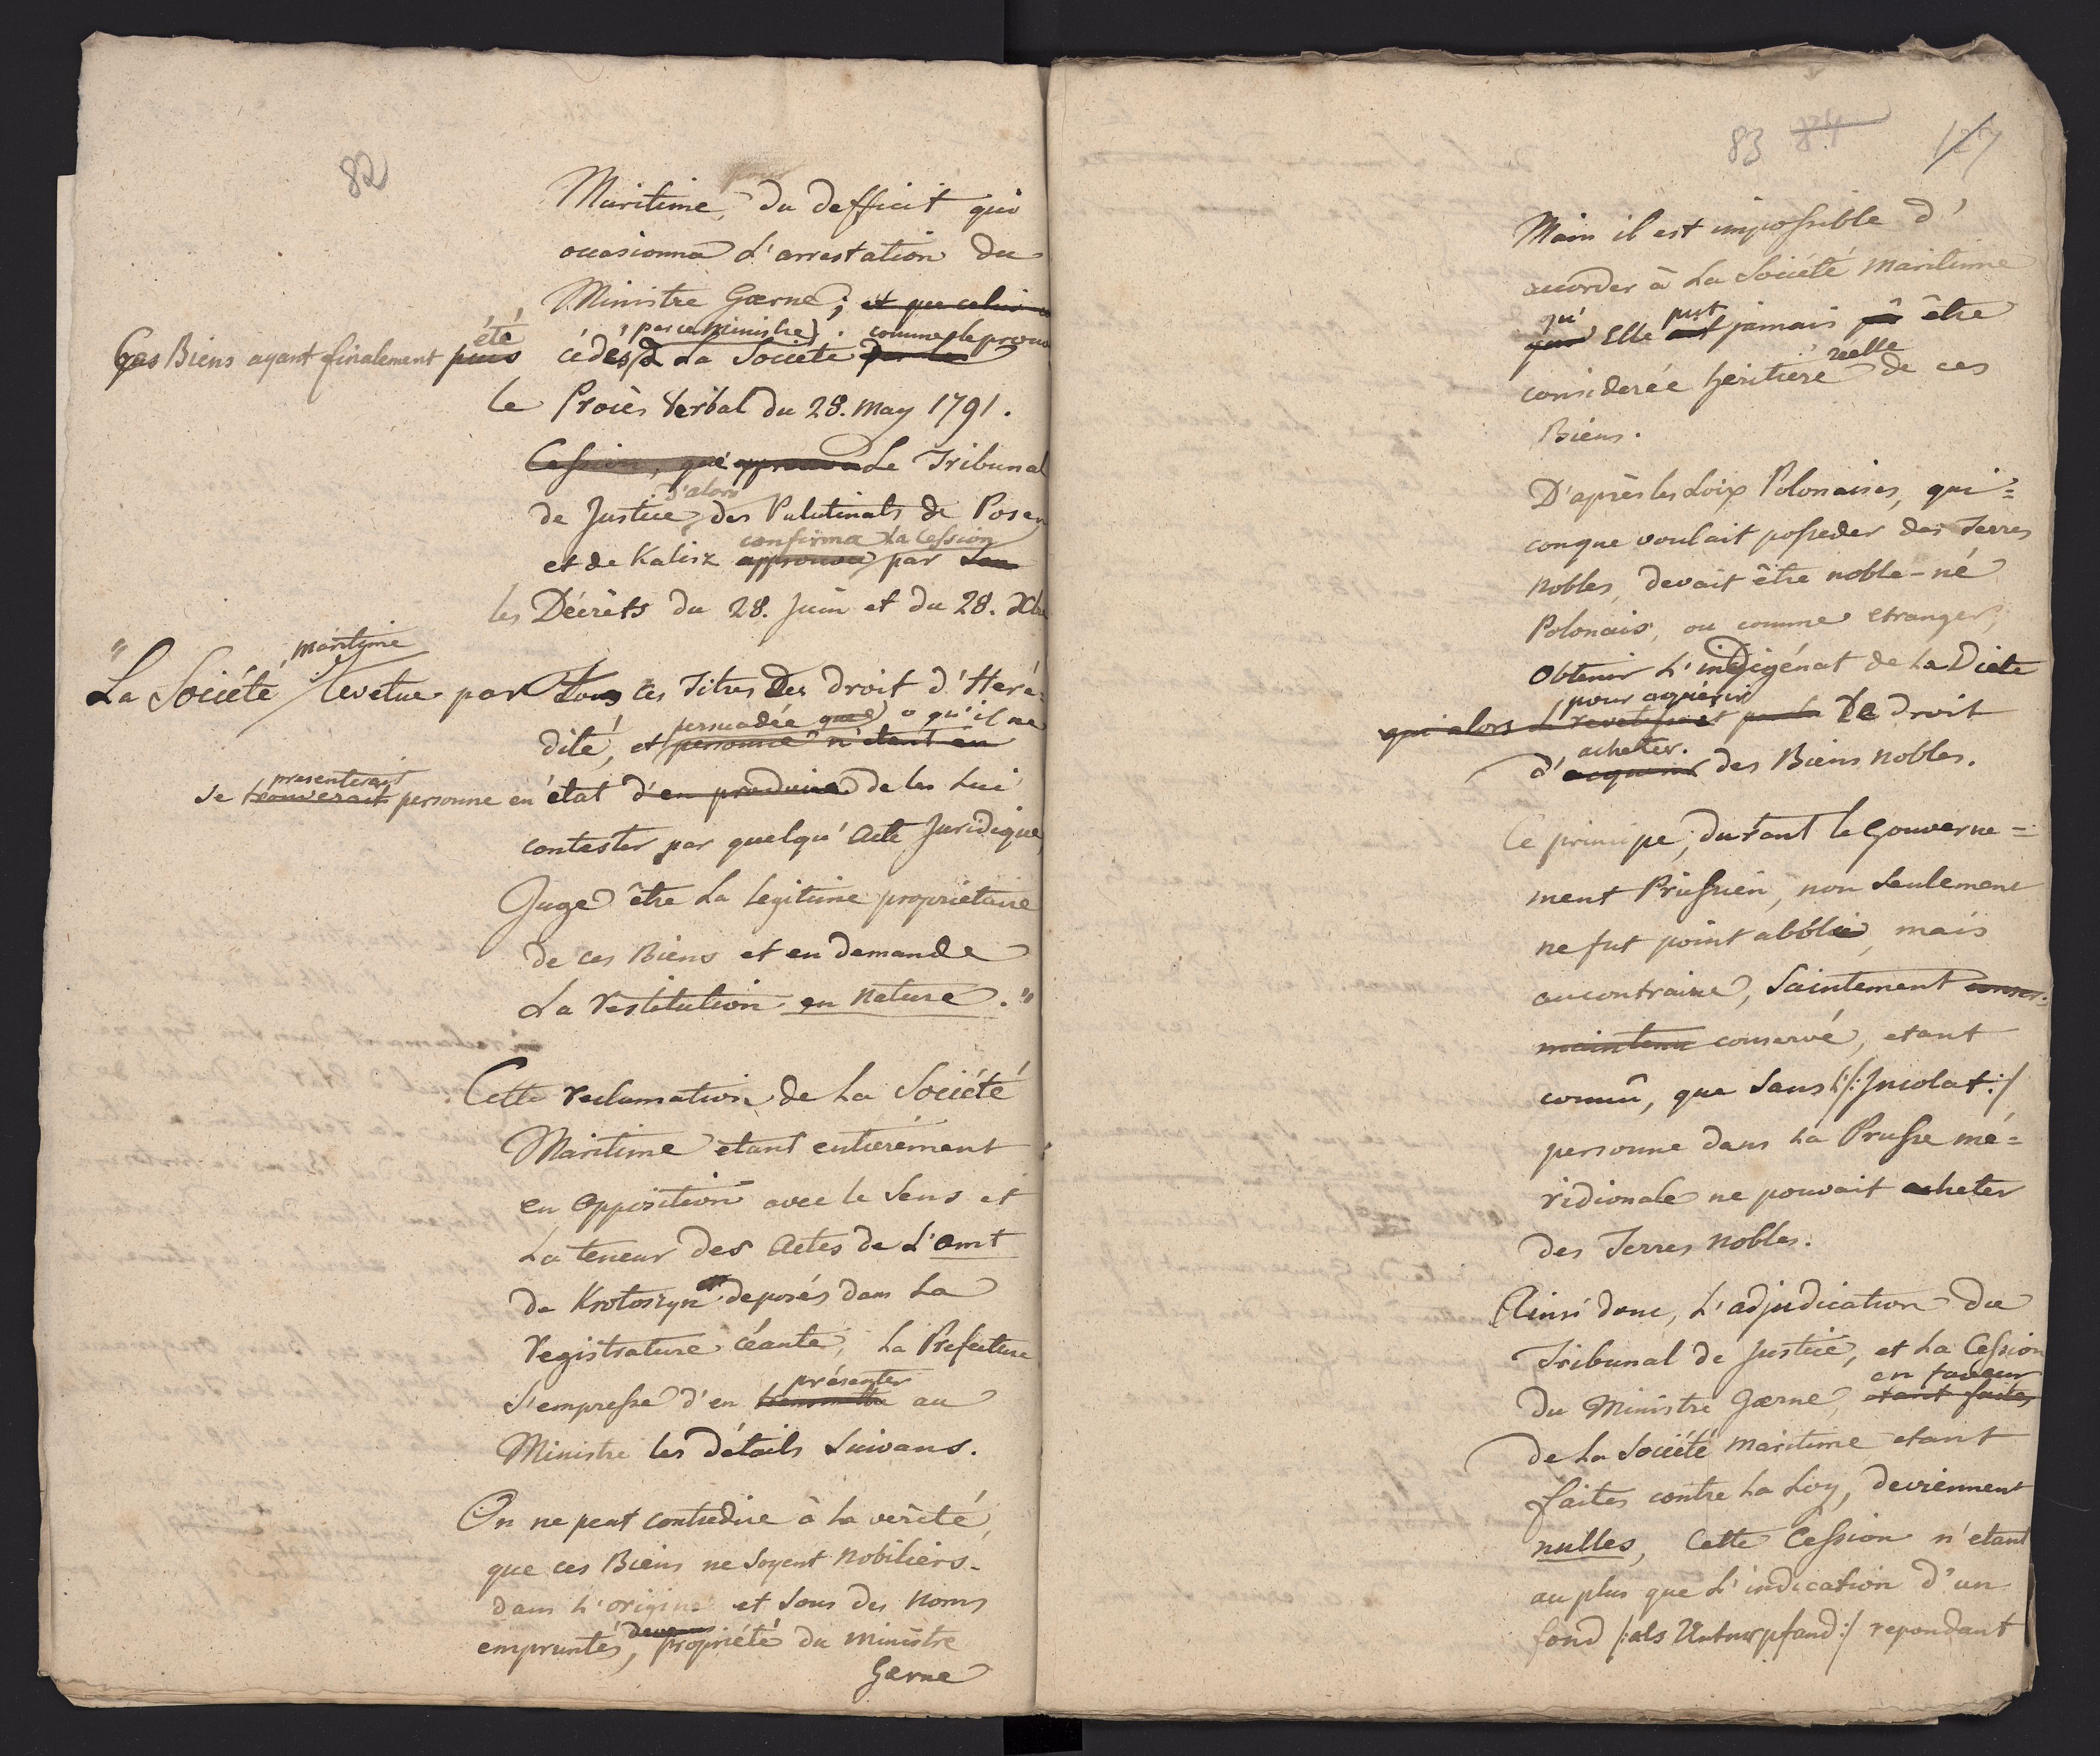 82
Maritime, du defficit qui
occasionna l'arrestation du
Ministre Gœrne; et que celui
été , par ce Ministre, comme le prouve
Ces Biens ayant finalement puis cédés à La Société
le Procès Verbal du 28. May 1791.
Cession, que approuva Le Tribunal
d'alors
de Justice des Palatinats de Posen
confirma la Cession
et de Kalisz approuva par
les Décrèts du 28. Juin et du 28. Xbre
maritime
"La Société revetue par Tous ces Titres des Droit d'Heré-
persuadée que qu'il ne
dité, et personne n'étant en
presenterait
se trouverait personne en état d'en produire de les Lui
contester par quelqu' acte Juridique,
Juge être La legitime propriétaire
de ces Biens et en demande
La restitution en nature."
Cette reclamation de La Société
Maritime étant entierèment
en opposition avec le Sens et
La teneur des Actes de L'Amt
de Krotoszyn deposés dans La
registrature céante, La Prefecture
présenter
s'empresse d'en transmettre au
Ministre les détails suivans.
On ne peut contredire à la vérité,
que ces Biens ne soyent nobiliers
dans l'origine et sous des noms
devenus
empruntés, propriété du Ministre
Gærne
83 84 127
Main il est impossible d'
accorder à La Société Maritime
qu' put
que Elle ait jamais pû être
réelle
considerée heritière de ces
Biens.
D'après les Loix Polonaises, qui-
conque voulait posseder des Terres
nobles, devait être noble-né
Polonais, ou comme etranger,
obtenir L'indigénat de La Diete
pour acquérir
qui alors Le droit
acheter.
d'acquerir des Biens nobles.
Ce principe, durant le Gouverne-
ment Prussien, non seulement
ne fut point abbolie, mais
aucontraire, Saintement conser-
maintenu conservé, etant
connû, que sans l'/:Incolat:/
personne dans La Prusse mé-
ridionale ne pouvait acheter
des Terres nobles.
Ainsi donc, L'adjudication du
Tribunal de Justice, et La Cession
en faveur
du Ministre Gærne, etant faites
de La Société Maritime etant
faites contre La Loy, deviennent
nulles, Cette Cession n'etant
au plus que L'indication d'un
fond /:als Unterpfand:/ repondant